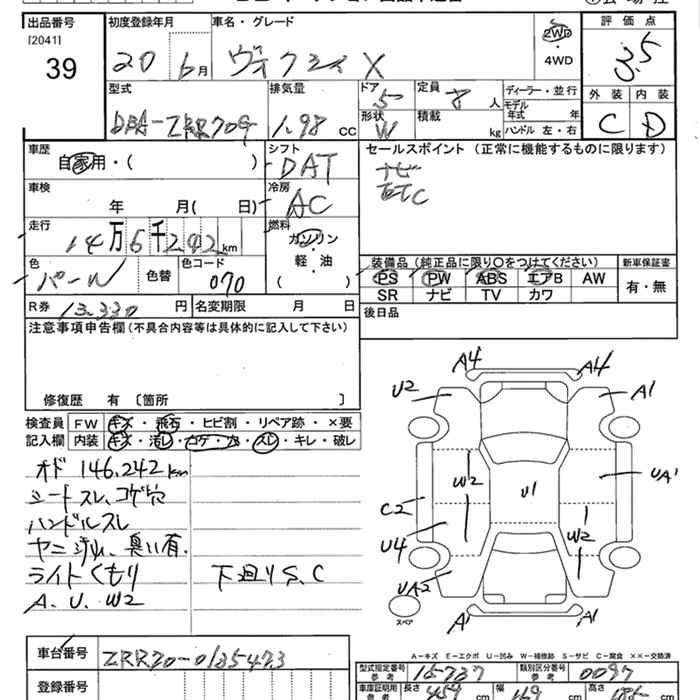 出品番号 初度登録年月 車名・グレード 評価点
[2041]
39
20 6月 ヴォクシィ X 2WD・4WD 3.5
型式 排気量 ドア 5 定員 8人 ディーラー・並行 外装 内装
モデル年式 年
DBA-ZRR70G 1.98 CC 形状 W 積載 kg ハンドル 左・右 C D
車歴 シフト セールスポイント(正常に機能するものに限ります)
自家用・( ) DAT ナビ
車検 冷房 ETC
年 月( 日) AC
走行 燃料
14万6千242km ガソリン・軽・油
( )
色 色替 色コード 装備品(純正品に限り○をつけてください) 新車保証書
パール 070 PS PW ABS エアB AW 有・無
SR ナビ TV カワ
R券 13,330円 名変期限 月 日 後日品
注意事項申告欄(不具合内容等は具体的に記入して下さい)
修復歴 有 〔箇所 〕
検査員記入欄 FW キズ・飛石・ヒビ割・リペア跡・×要
内装 キズ・汚レ・コゲ・穴・スレ・キレ・破レ
オド 146,242km
シートスレ、コゲ穴
ハンドルスレ
ヤニ汚れ、臭い有.
ライトくもり 下廻りS、C
A、U、W2
A4 A4
U2 A1
W2 U1 UA1
C2
U4 W2
UA2
スペア A1 A1
A-キズ E-エクボ U-凹み W-補修跡 S-サビ C-腐食 XX-交換済
車台番号 ZRR70-0125473
登録番号
型式指定番号 参考 15737 類別区分番号 参考 0097
車庫証明用 参考 長さ 459 cm 幅 169 cm 高さ 185 cm